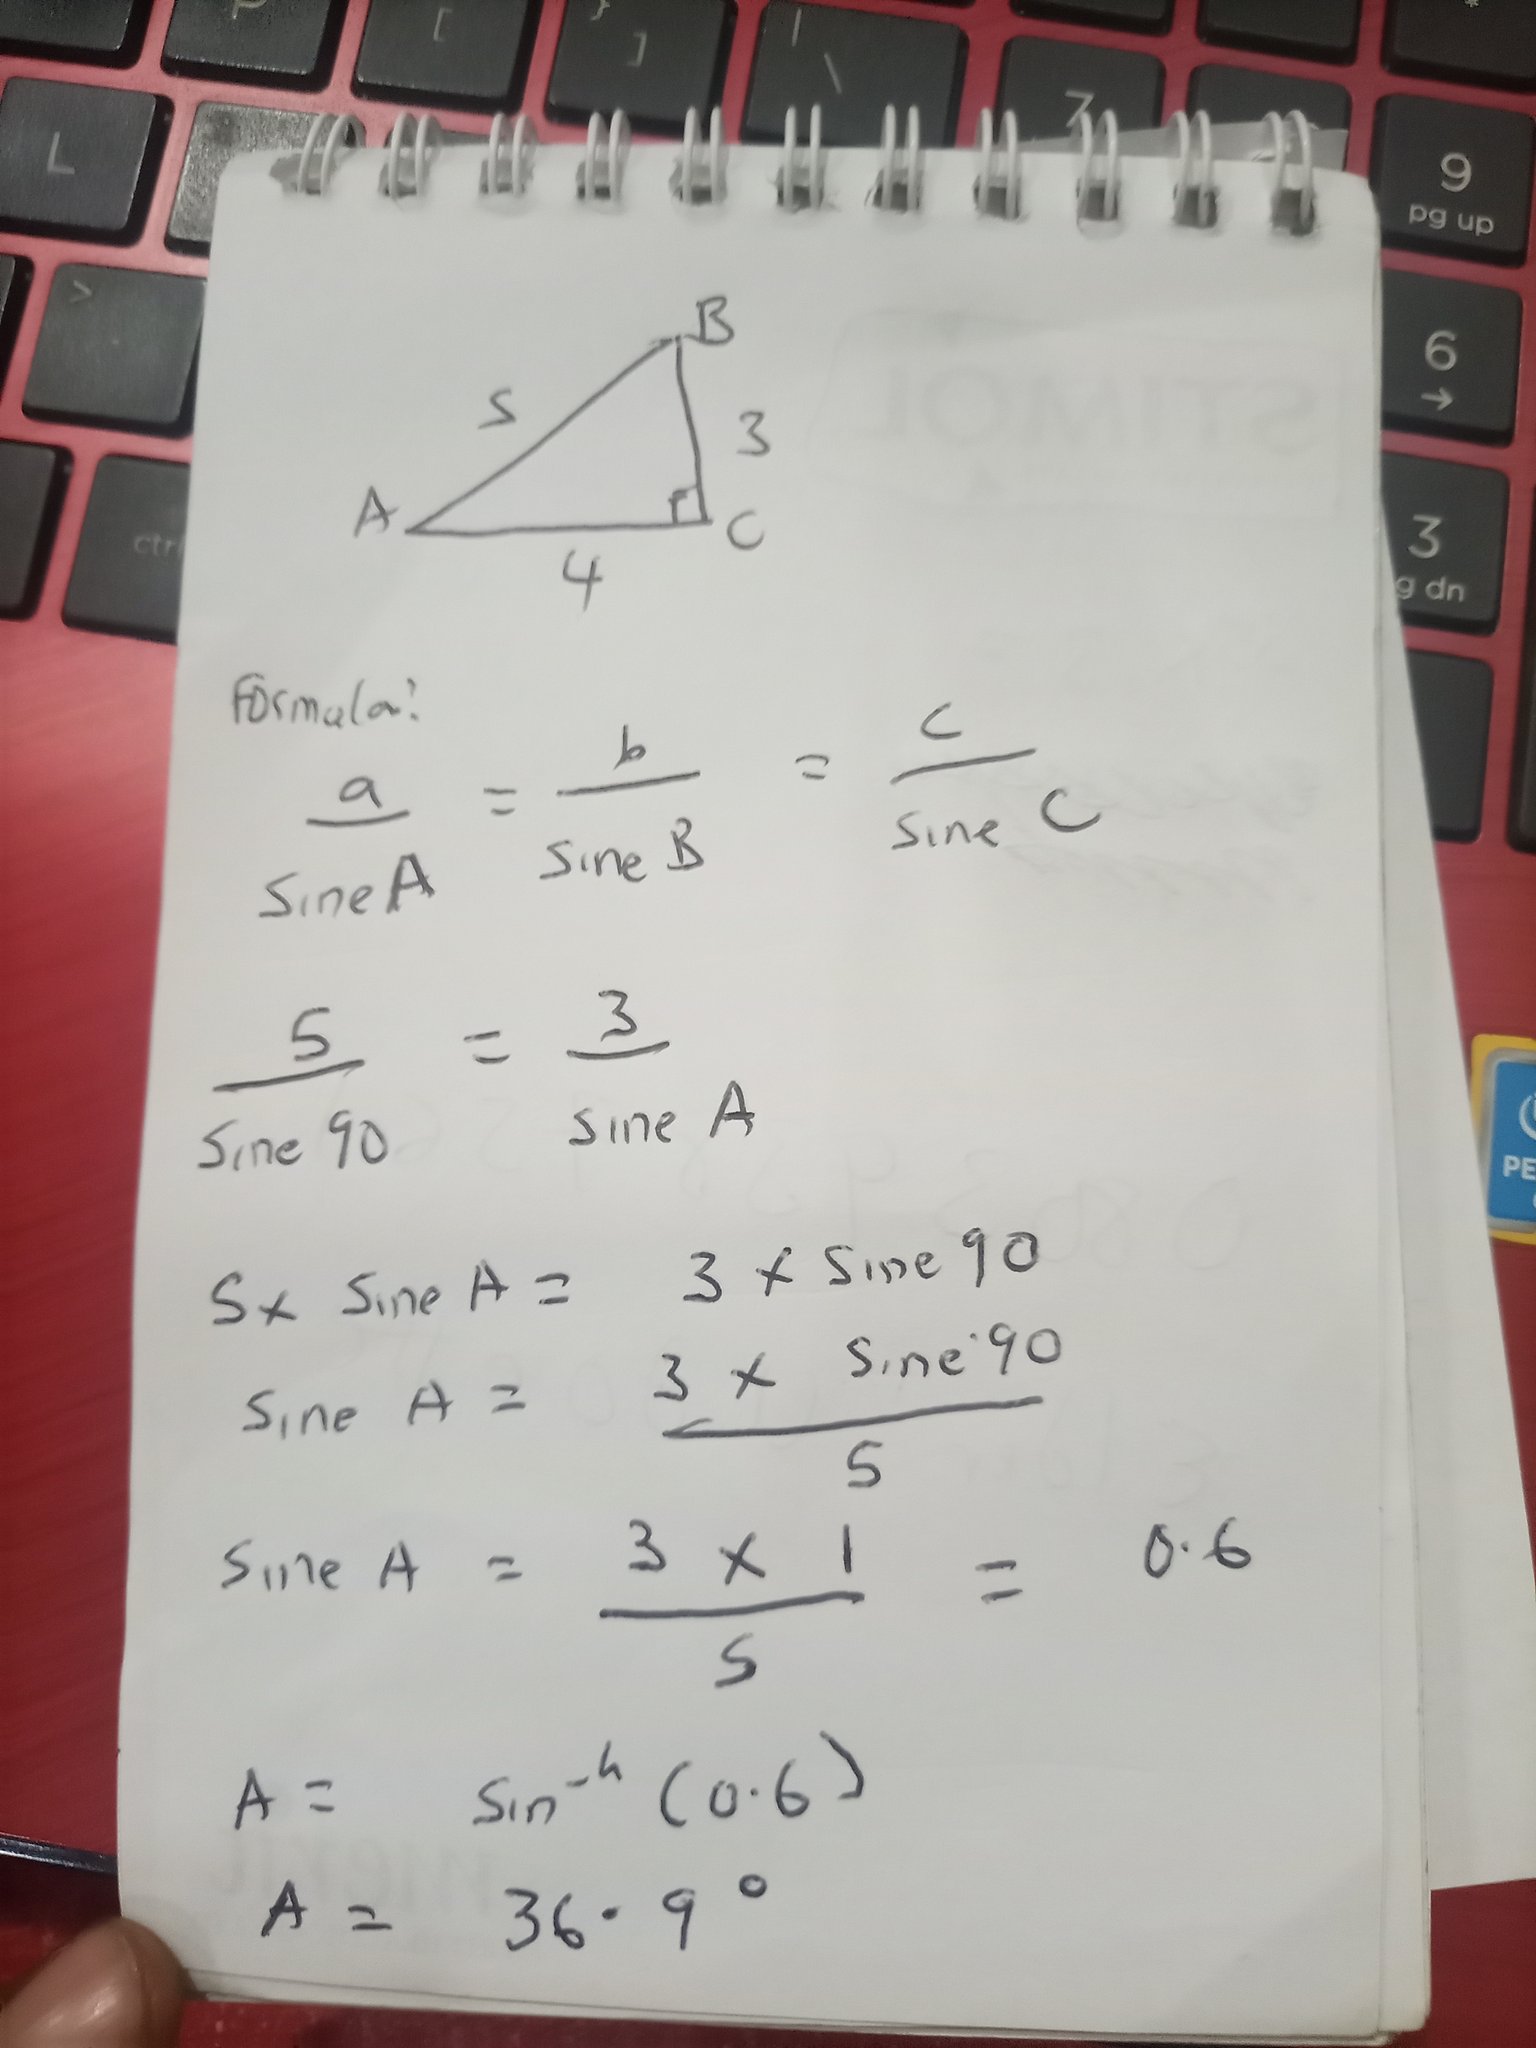 P
[
}
]
|
\
7
L
9
pg up
>
6
→
ctrl
3
g dn
B
5
3
A
C
4
Formula:
a/sine A = b/sine B = c/sine C
5/sine 90 = 3/sine A
5 x sine A = 3 x sine 90
sine A = 3 x sine 90/5
sine A = 3 x 1/5 = 0.6
A = sin⁻¹ (0.6)
A = 36.9°
PE